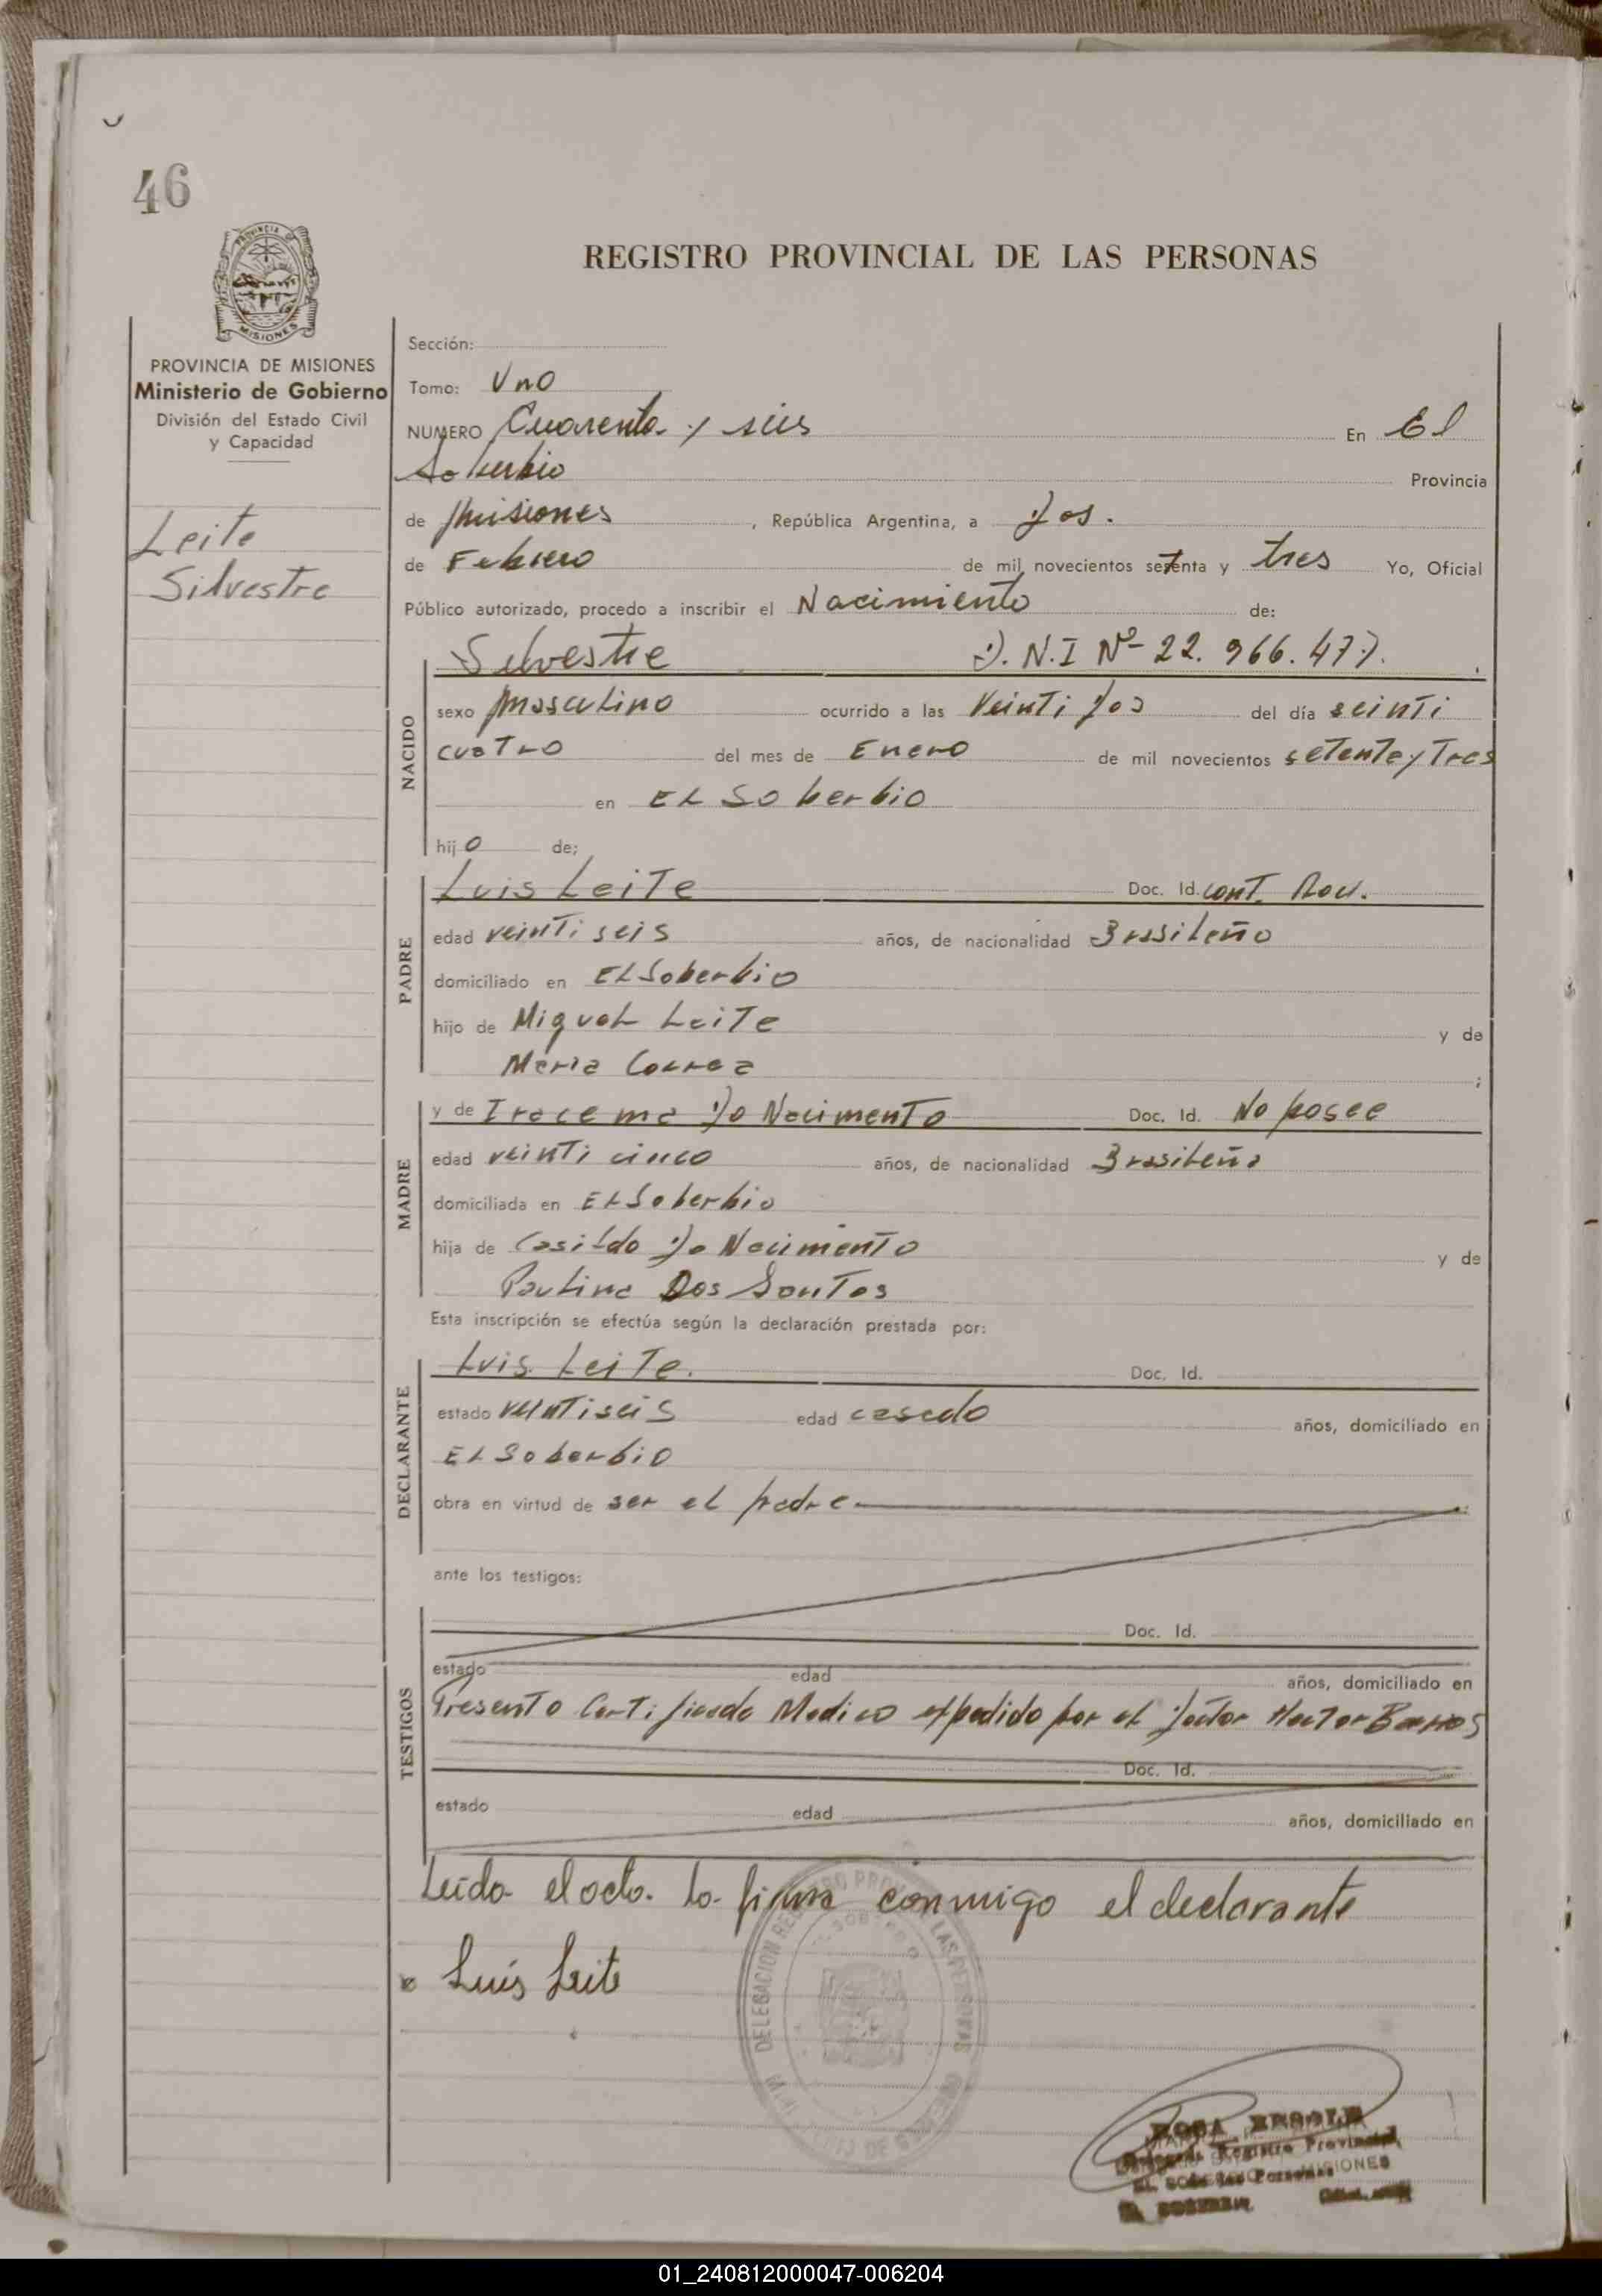 46
REGISTRO PROVINCIAL DE LAS PERSONAS
PROVINCIA
MISIONES
PROVINCIA DE MISIONES
Ministerio de Gobierno
División del Estado Civil
y Capacidad
Leite
Silvestre
Sección:
Tomo: Uno
NUMERO Cuarenta y seis En El
Soberbio Provincia
de Misiones, República Argentina, a Dos.
de Febrero de mil novecientos setenta y tres Yo, Oficial
Público autorizado, procedo a inscribir el Nacimiento de:
NACIDO
Silvestre D.N.I Nº 22.966.477.
sexo masculino ocurrido a las Veinti Dos del día veinti
cuatro del mes de Enero de mil novecientos setenta y Tres
en El Soberbio
hijo de;
PADRE
Luis Leite Doc. Id. cont.
edad veinti seis años, de nacionalidad Brasileño
domiciliado en El Soberbio
hijo de Miguel Leite y de
Maria Correa;
MADRE
y de Iracema Do Nacimento Doc. Id. No posee
edad veinti cinco años, de nacionalidad Brasileña
domiciliada en El Soberbio
hija de Casildo Do Nacimento y de
Paulina Dos Santos
Esta inscripción se efectúa según la declaración prestada por:
DECLARANTE
Luis Leite. Doc. Id.
estado veintiseis edad casado años, domiciliado en
El Soberbio
obra en virtud de ser el padre
ante los testigos:
TESTIGOS
Doc. Id.
estado edad años, domiciliado en
Presento Certificado Medico expedido por el Doctor Hector Barrios
Doc. Id.
estado edad años, domiciliado en
Leido el acto. lo firma conmigo el declarante
Luis Leite
DELEGACION REGISTRO PROVINCIAL DE LAS PERSONAS
ROSA
Registro Provincial
de las Personas
MISIONES
EL SOBERBIO
01_240812000047-006204